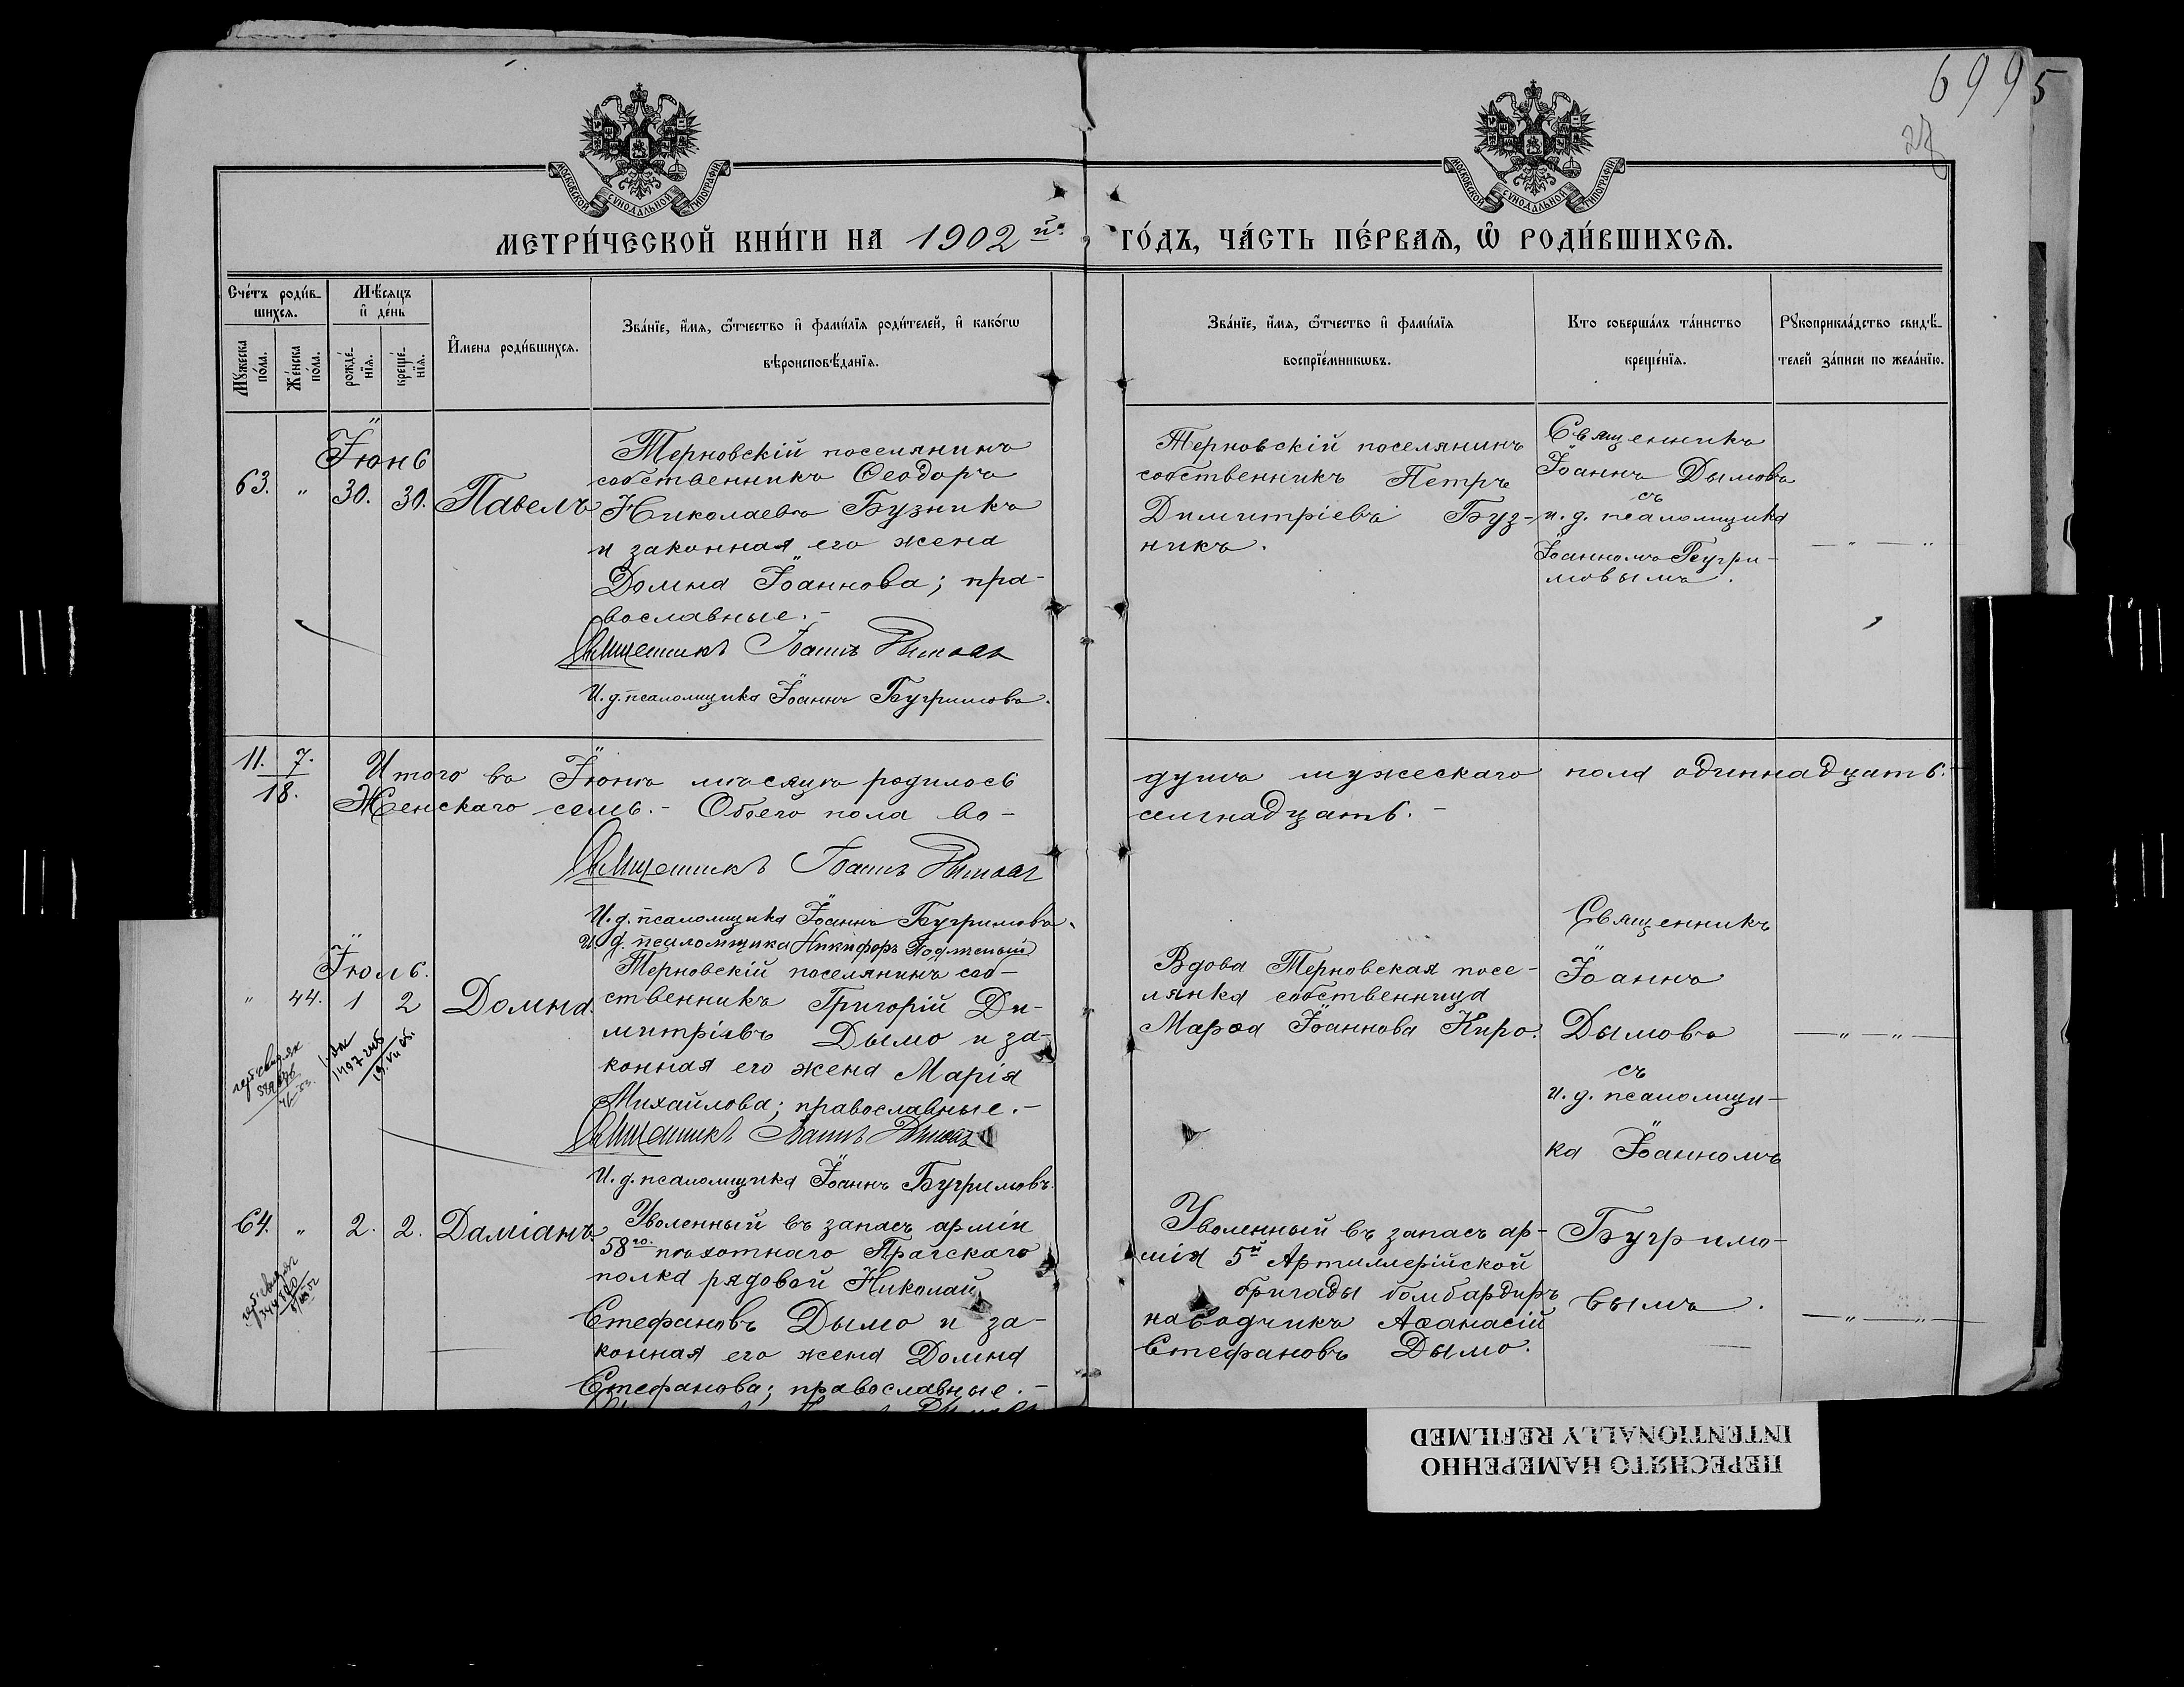 6995
28
МОСКОВСКОЙ СѴНОДАЛЬНОЙ ТИПОГРАФІИ
МОСКОВСКОЙ СѴНОДАЛЬНОЙ ТИПОГРАФІИ
МЕТРИ́ЧЕСКОЙ КНИ́ГИ НА 1902й. ГО́ДЪ, ЧА́СТЬ ПЕ́РВАѦ, Ѽ РОДИ́ВШИХСѦ.
Сче́тъ роди́в-
шихсѧ.
Мꙋ́жеска по́ла.
Же́нска по́ла.
Мѣ́сѧцъ и҆ де́нь
рожде́-
нїѧ.
креще́-
нїѧ.
И҆мена роди́вшихсѧ.
Зва́нїе, и҆́мѧ, ѻ҆́тчество и҆ фами́лїѧ роди́телей, и҆ како́гѡ
вѣроисповѣ́данїѧ.
Зва́нїе, и҆́мѧ, ѻ҆́тчество и҆ фами́лїѧ
воспрїе́мникѡвъ.
Кто соверша́лъ та́инство
креще́нїѧ.
Рꙋкоприкла́дство свидѣ́-
телей за́писи по жела́нїю.
Їюнь
63. " 30. 30. Павелъ
Терновскій поселянинъ
собственникъ Ѳеодоръ
Николаевъ Бузникъ
и законная его жена
Домна Їоаннова; пра-
вославные.-
Священникъ Іоаннъ Дымовъ
И. д. псаломщика Їоаннъ Бугримовъ.
Терновскій поселянинъ
собственникъ Петръ
Димитріевъ Буз-
никъ.
Священникъ
Їоаннъ Дымовъ
съ
и. д. псаломщика
Їоанномъ Бугри-
мовымъ.
— " — "
11. 7.
18.
Итого въ Їюнѣ мѣсяцѣ родилось душъ мужескаго пола одиннадцать.
Женскаго семь.- Обоего пола во- семнадцать.-
Священникъ Іоаннъ Дымовъ
И. д. псаломщика Їоаннъ Бугримовъ.
И. д. псаломщика Никифоръ
Їюль.
" 44. 1 2 Домна.
Терновскій поселянинъ соб-
ственникъ Григорій Ди-
митріевъ Дымо и за-
конная его жена Марія
Михайлова; православные.-
Священникъ Іоаннъ Дымовъ
И. д. псаломщика Їоаннъ Бугримовъ.
Вдова Терновская посе-
лянка собственница
Марѳа Їоаннова Киро.
Священникъ
Їоаннъ
Дымовъ
съ
и. д. псаломщи-
ка Їоанномъ
Бугримо-
вымъ.
— " — " —
64. " 2. 2. Даміанъ.
Уволенный въ запасъ арміи
58го. пѣхотнаго Прагскаго
полка рядовой Николай
Стефановъ Дымо и за-
конная его жена Домна
Стефанова; православные.-
Уволенный въ запасъ ар-
міи 5й Артиллерійской
бригады бомбардиръ
наводчикъ Аѳанасій
Стефановъ Дымо.
— " — " —
ПЕРЕСНЯТО НАМЕРЕННО
INTENTIONALLY REFILMED